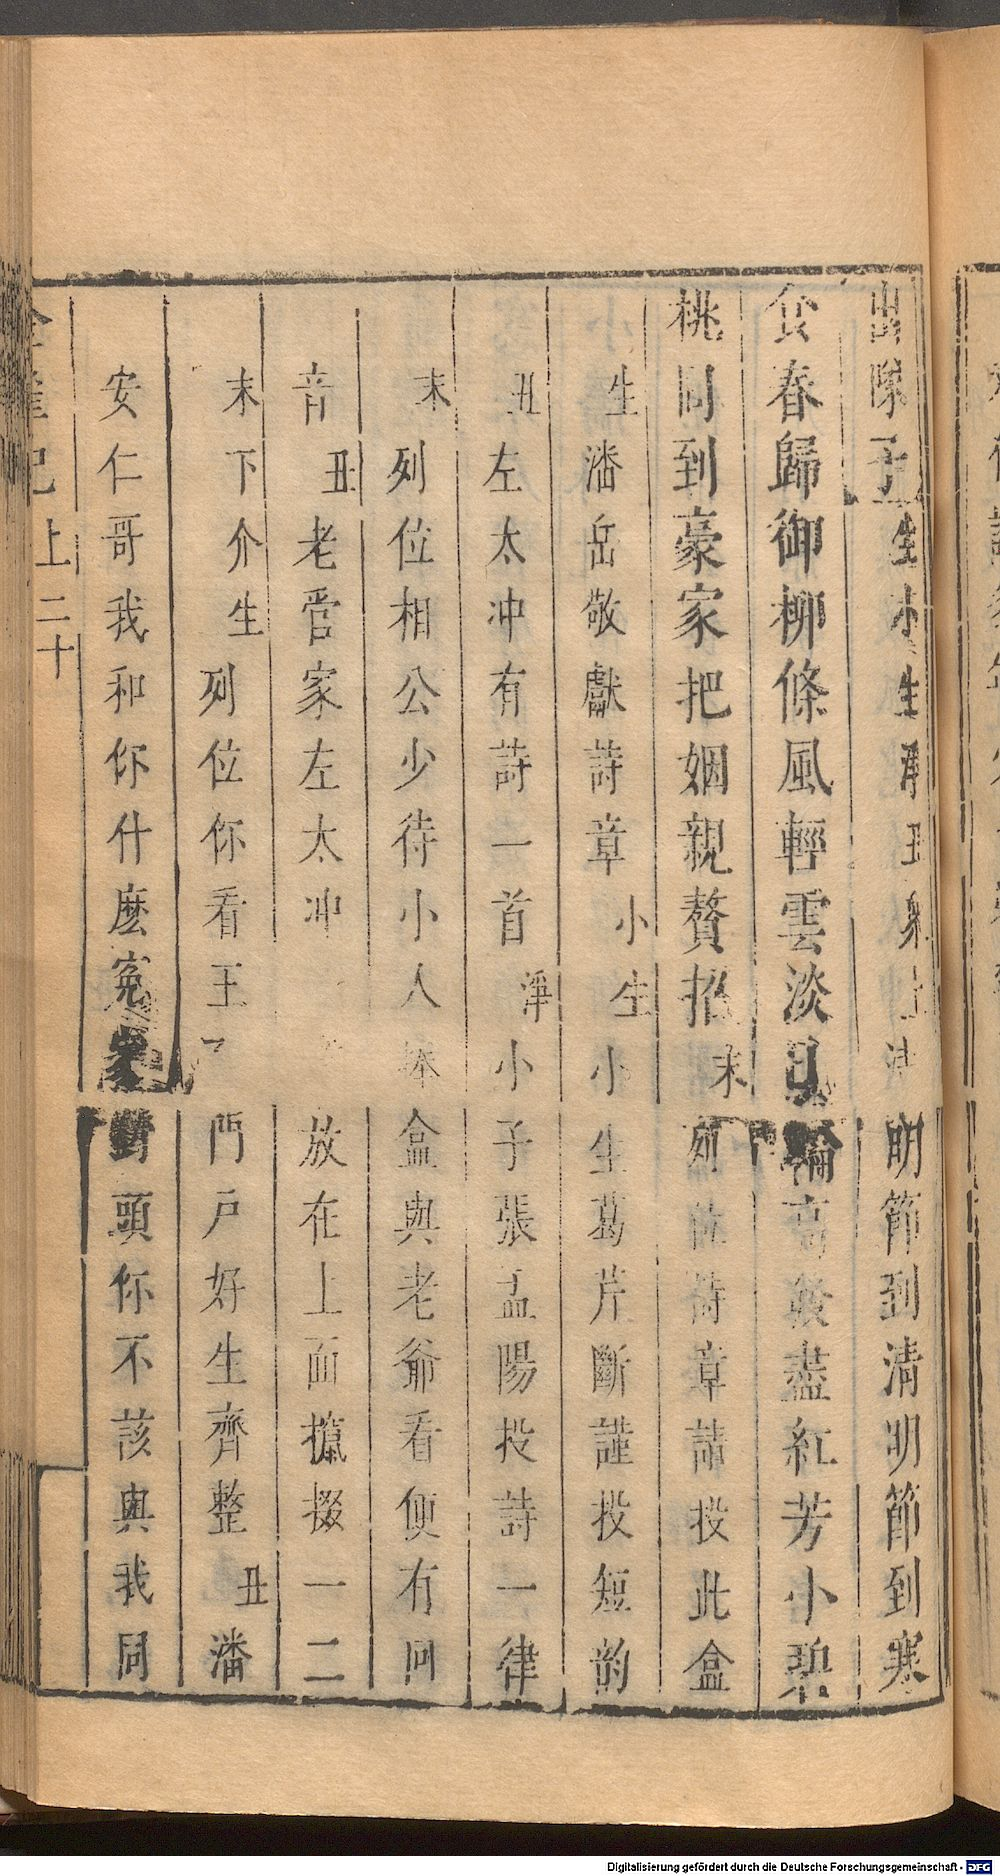 出隊子生小生淨丑衆上清明節到清明節到寒
食春歸御柳條風輕雲淡日輪高褪盡紅芳小碧
桃同到豪家把姻親贅招末列位詩章請投此盒
生潘岳敬獻詩章小生小生葛芹斷謹投短韵
丑左太冲有詩一首淨小子張孟陽投詩一律
末列位相公少待小人捧盒與老爺看便有回
音丑老管家左太冲放在上面攛掇一二
末下介生列位你看王門戶好生齊整丑潘
安仁哥我和你什麽冤家對頭你不該與我同
金雀記上二十
Digitalisierung gefördert durch die Deutsche Forschungsgemeinschaft - DFG